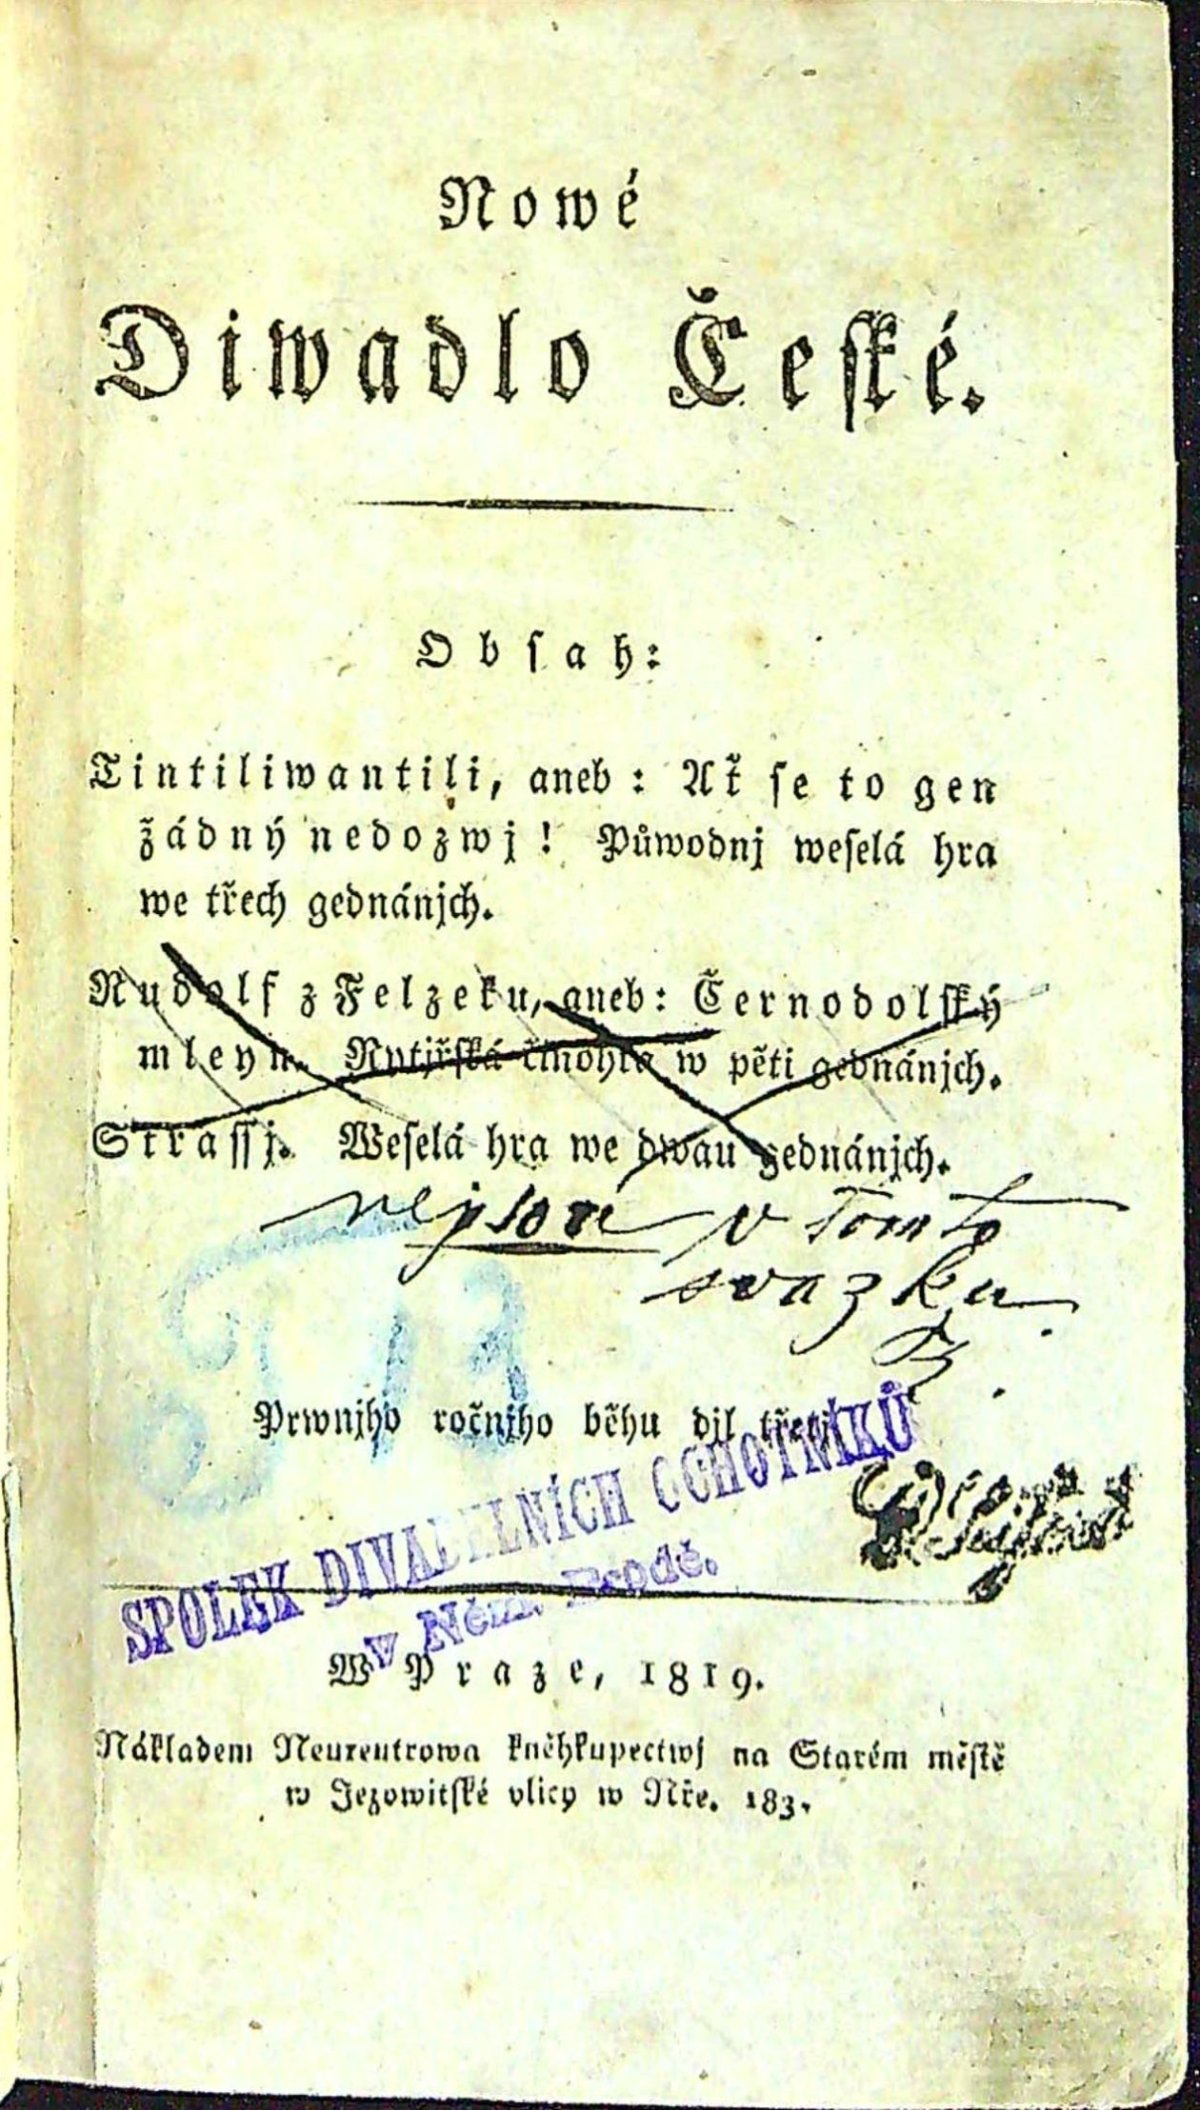 Nowé
Diwadlo České.
Obsah:
Tintiliwantili, aneb: Ať se to gen
žádný nedozwj! Půwodnj weselá hra
we třech gednánjch.
Rudolf z Felzeku, aneb: Černodolský
mleyn. Rytjřská činohra w pěti gednánjch.
Strassj. Weselá hra we dwau gednánjch.
nejsou v tomto
svazku
Prwnjho ročnjho běhu djl třetj.
SPOLEK DIVADELNÍCH OCHOTNÍKŮ
v Něm. Brodě.
W Praze, 1819.
Nákladem Neureutrowa kněhkupectwj na Starém městě
w Jezowitské vlicy w Nře. 183.